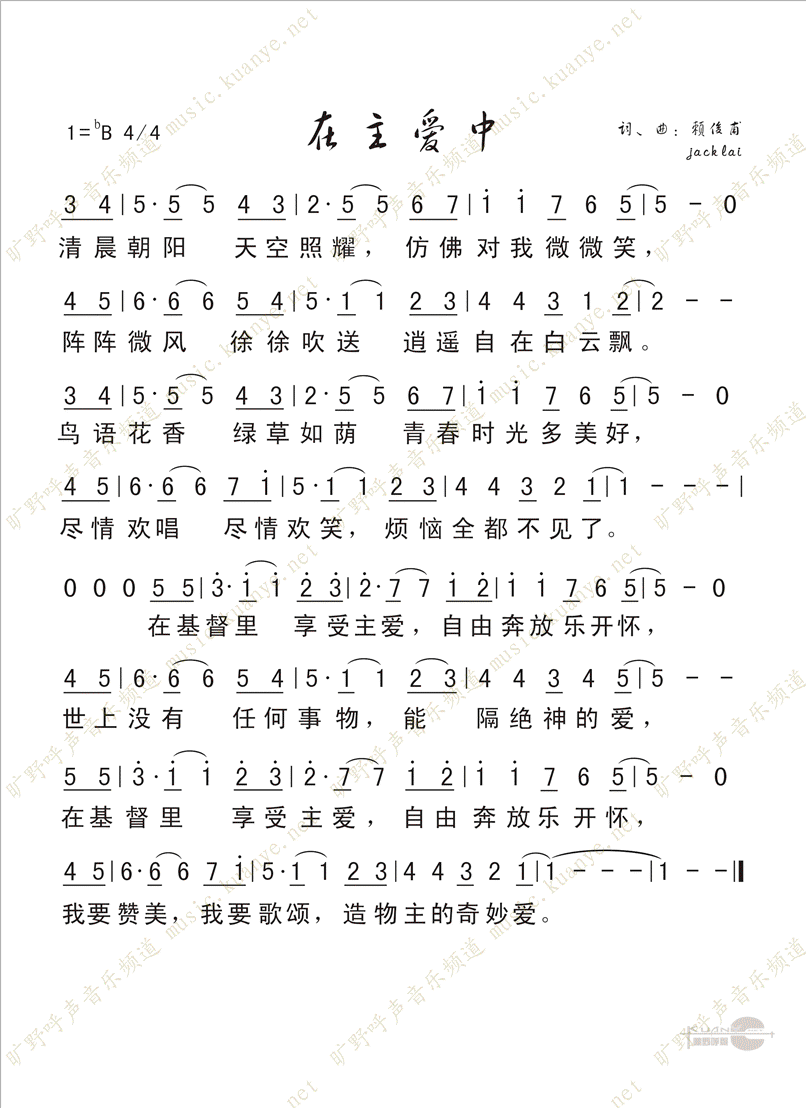 1=ᵇB 4/4
在主爱中
词、曲：赖俊甫
jack lai
3 4|5·5 5 4 3|2·5 5 6 7|i i 7 6 5|5 - 0
清晨朝阳 天空照耀，仿佛对我微微笑，
4 5|6·6 6 5 4|5·1 1 2 3|4 4 3 1 2|2 - -
阵阵微风 徐徐吹送 逍遥自在白云飘。
3 4|5·5 5 4 3|2·5 5 6 7|i i 7 6 5|5 - 0
鸟语花香 绿草如荫 青春时光多美好，
4 5|6·6 6 7 i|5·1 1 2 3|4 4 3 2 1|1 - - -|
尽情欢唱 尽情欢笑，烦恼全都不见了。
0 0 0 5 5|3̇·i i 2̇ 3̇|2̇·7 7 i 2̇|i i 7 6 5|5 - 0
在基督里 享受主爱，自由奔放乐开怀，
4 5|6·6 6 5 4|5·1 1 2 3|4 4 3 4 5|5 - -
世上没有 任何事物，能 隔绝神的爱，
5 5|3̇·i i 2̇ 3̇|2̇·7 7 i 2̇|i i 7 6 5|5 - 0
在基督里 享受主爱，自由奔放乐开怀，
4 5|6·6 6 7 i|5·1 1 2 3|4 4 3 2 1|1 - - -|1 - -‖
我要赞美，我要歌颂，造物主的奇妙爱。
旷野呼声音乐频道 music.kuanye.net